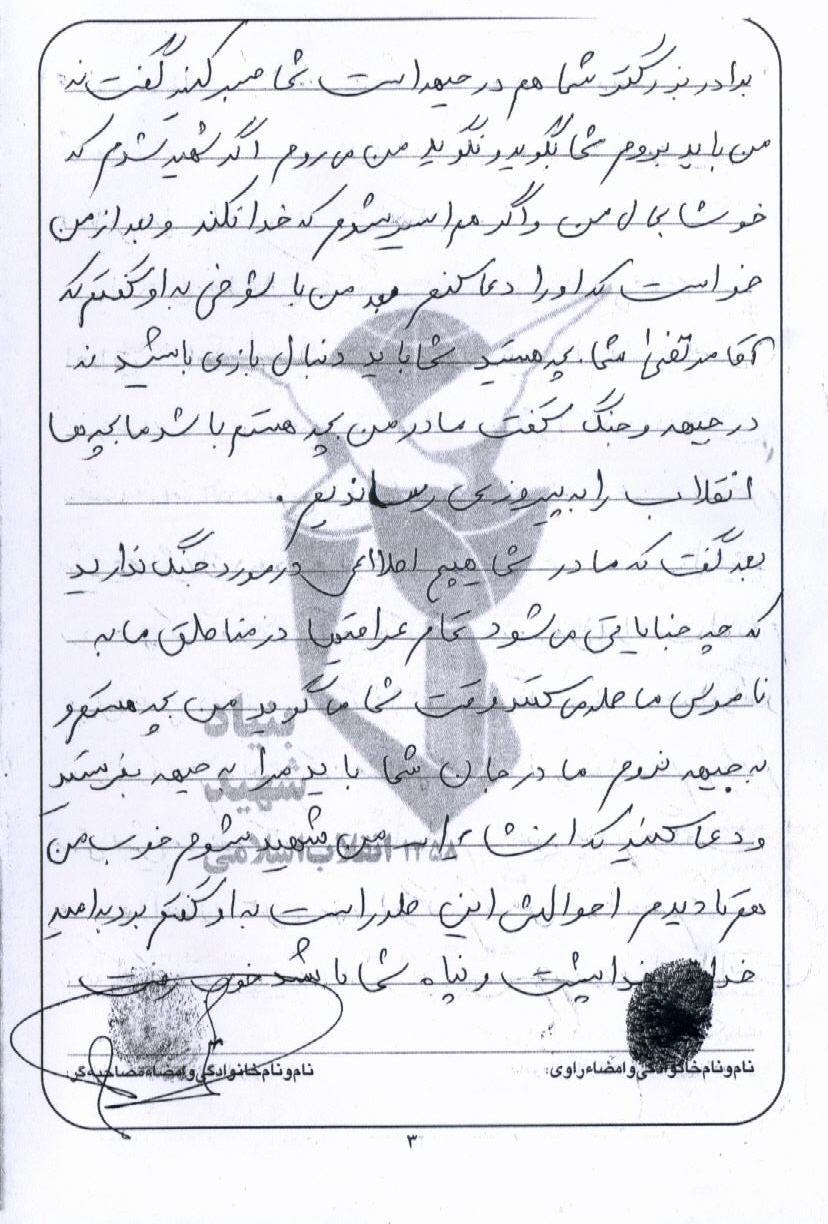 برادر بزرگتر شما هم در جبهه است شما صبر کنید گفت نه
من باید بروم شما بگوید و نگوید من می روم اگر شهید شدم که
خوشا بحال من و اگر هم اسیر شوم که خدا نکند و بعد از من
خواست که او را دعا کنم بعد من با شوخی به او گفتم که
آقا مرتضی شما بچه هستید شما باید دنبال بازی باشید نه
در جبهه و جنگ گفت مادر من بچه هستم باشد ما بچه ها
انقلاب را به پیروزی رساندیم .
بعد گفت که مادر شما هیچ اطلاعی در مورد جنگ ندارید
که چه جنایاتی می شود تمام عراقیها در مناطق ما به
ناموس ما حمله می کنند وقت شما می گوید من بچه هستم و
به جبهه نروم مادر جان شما باید مرا به جبهه بفرستید
و دعا کنید که انشاءالله من شهید شوم خوب من
هم تا دیدم احوالش این طور است به او گفتم برو به امید
خدا خدا پشت و پناه شما باشد خوب رفت
نام و نام خانوادگی و امضاء راوی:
نام و نام خانوادگی و امضاء مصاحبه گر:
بنیاد
شهید
انقلاب اسلامی ۱۳۵۸
۳